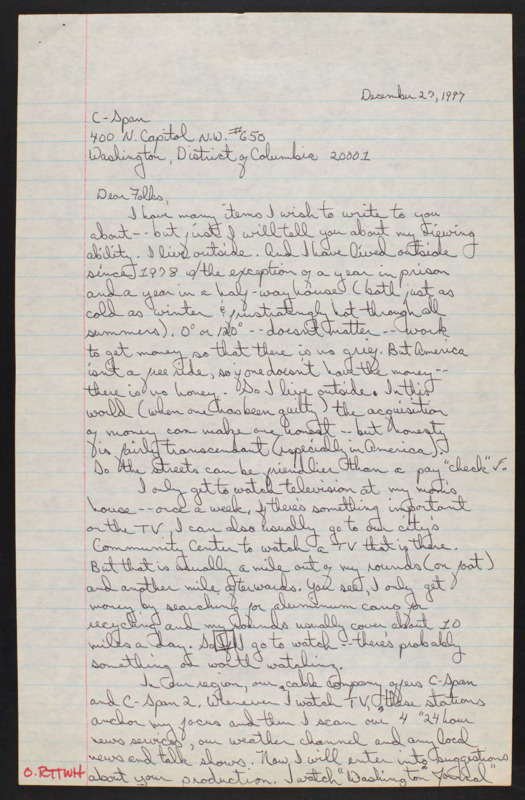 December 27, 1997
C-Span
400 N. Capitol N.W. #650
Washington, District of Columbia 20001
Dear Folks,
I have many items I wish to write to you
about -- but, just I will tell you about my viewing
ability. I live outside. And I have lived outside
since 1978 w/the exception of a year in prison
and a year in a half-way house (both just as
cold as winter & frustratingly hot through all
summers). 0° or 120° -- doesn't matter -- work
to get money, so that there is no grief. But America
isn't a free ride, so if one doesn't have the money --
there is no honey. So I live outside. In this
world (when one has been guilty) the acquisition
of money can make one honest -- but honesty
is fairly transcendant (especially in America).
So the streets can be friendlier than a pay "check" √.
I only get to watch television at my mom's
house -- once a week, if there's something important
on the TV. I can also usually go to our city's
Community Center to watch a TV that is there.
But that is usually a mile out of my rounds (or pat)
and another mile afterwards. You see, I only get
money by searching for aluminum cans for
recycling and my rounds usually cover about 10
miles a day. So if I go to watch -- there's probably
something of worth watching.
In our region, our cable company offers C-Span
and C-Span 2. Whenever I watch TV, these stations
anchor my focus and then I scan our 4 "24 hour
news services", our weather channel and any local
news and talk shows. Now, I will enter into suggestions
about your production. I watch "Washington Journal"
O.RTTWH